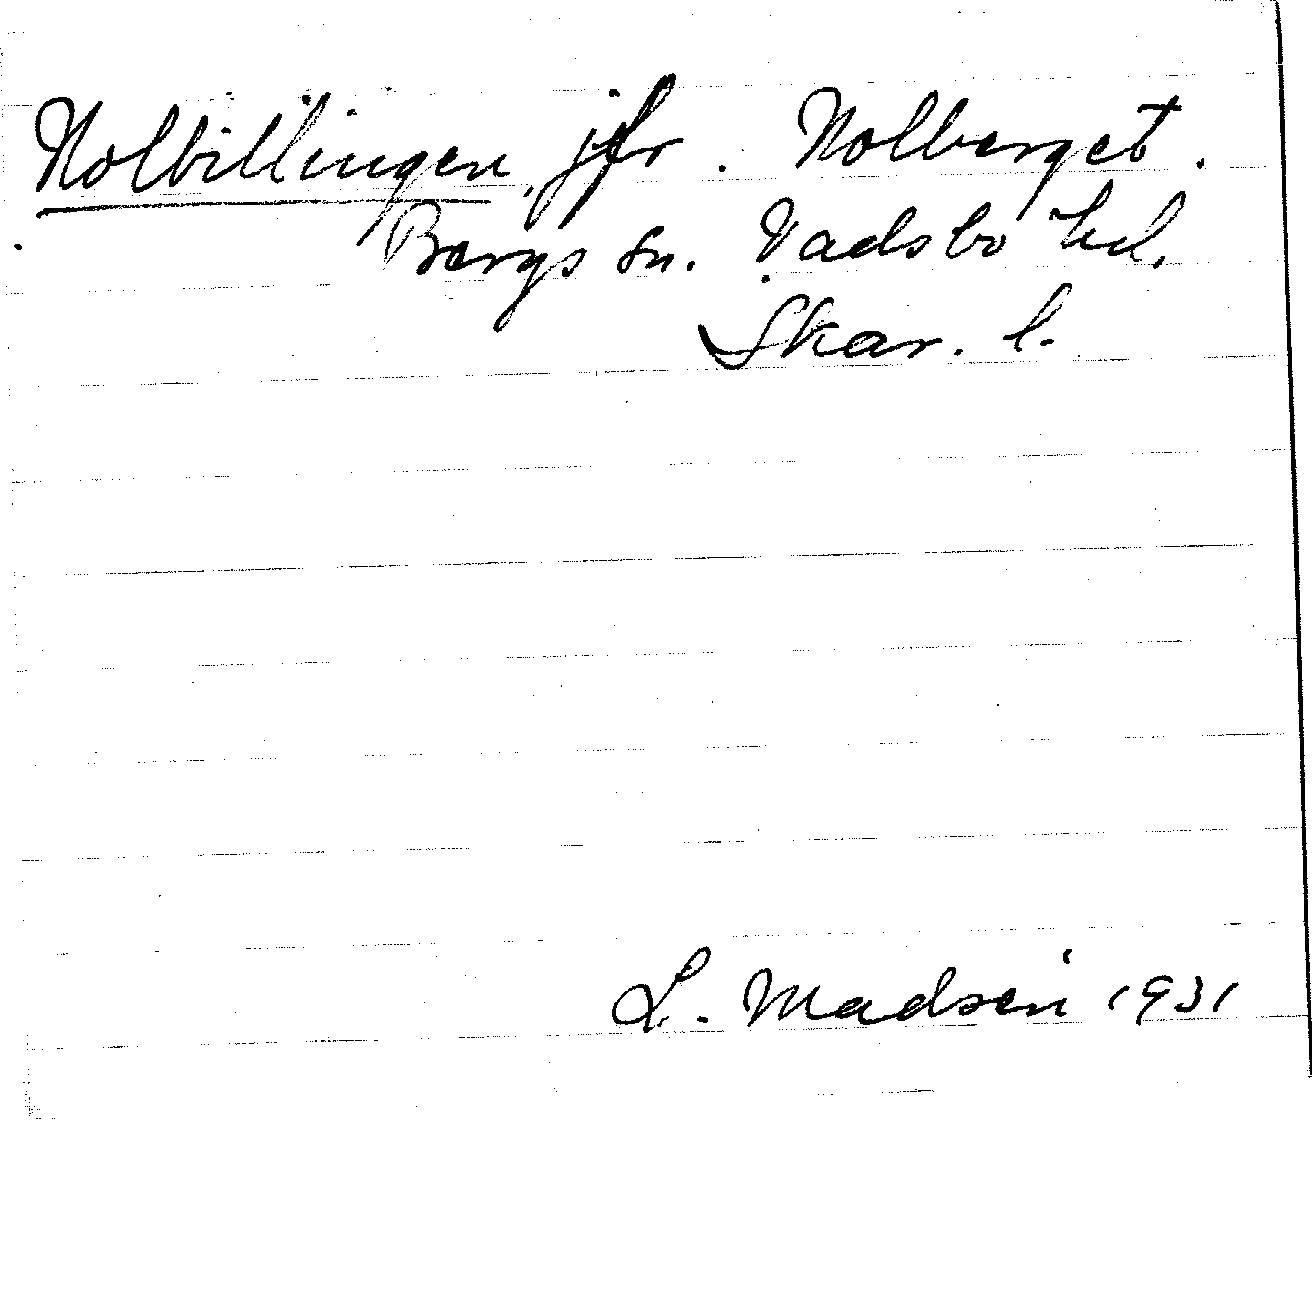 Nolbillingen, jfr. Nolberget.
Bergs sn. Vadsbo hd.
Skar. l.
L. Madsén 1931